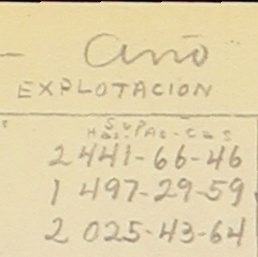 - año
EXPLOTACION
SUP.
Has - As - Cas
2441-66-46
1 497-29-59
2 025-43-64